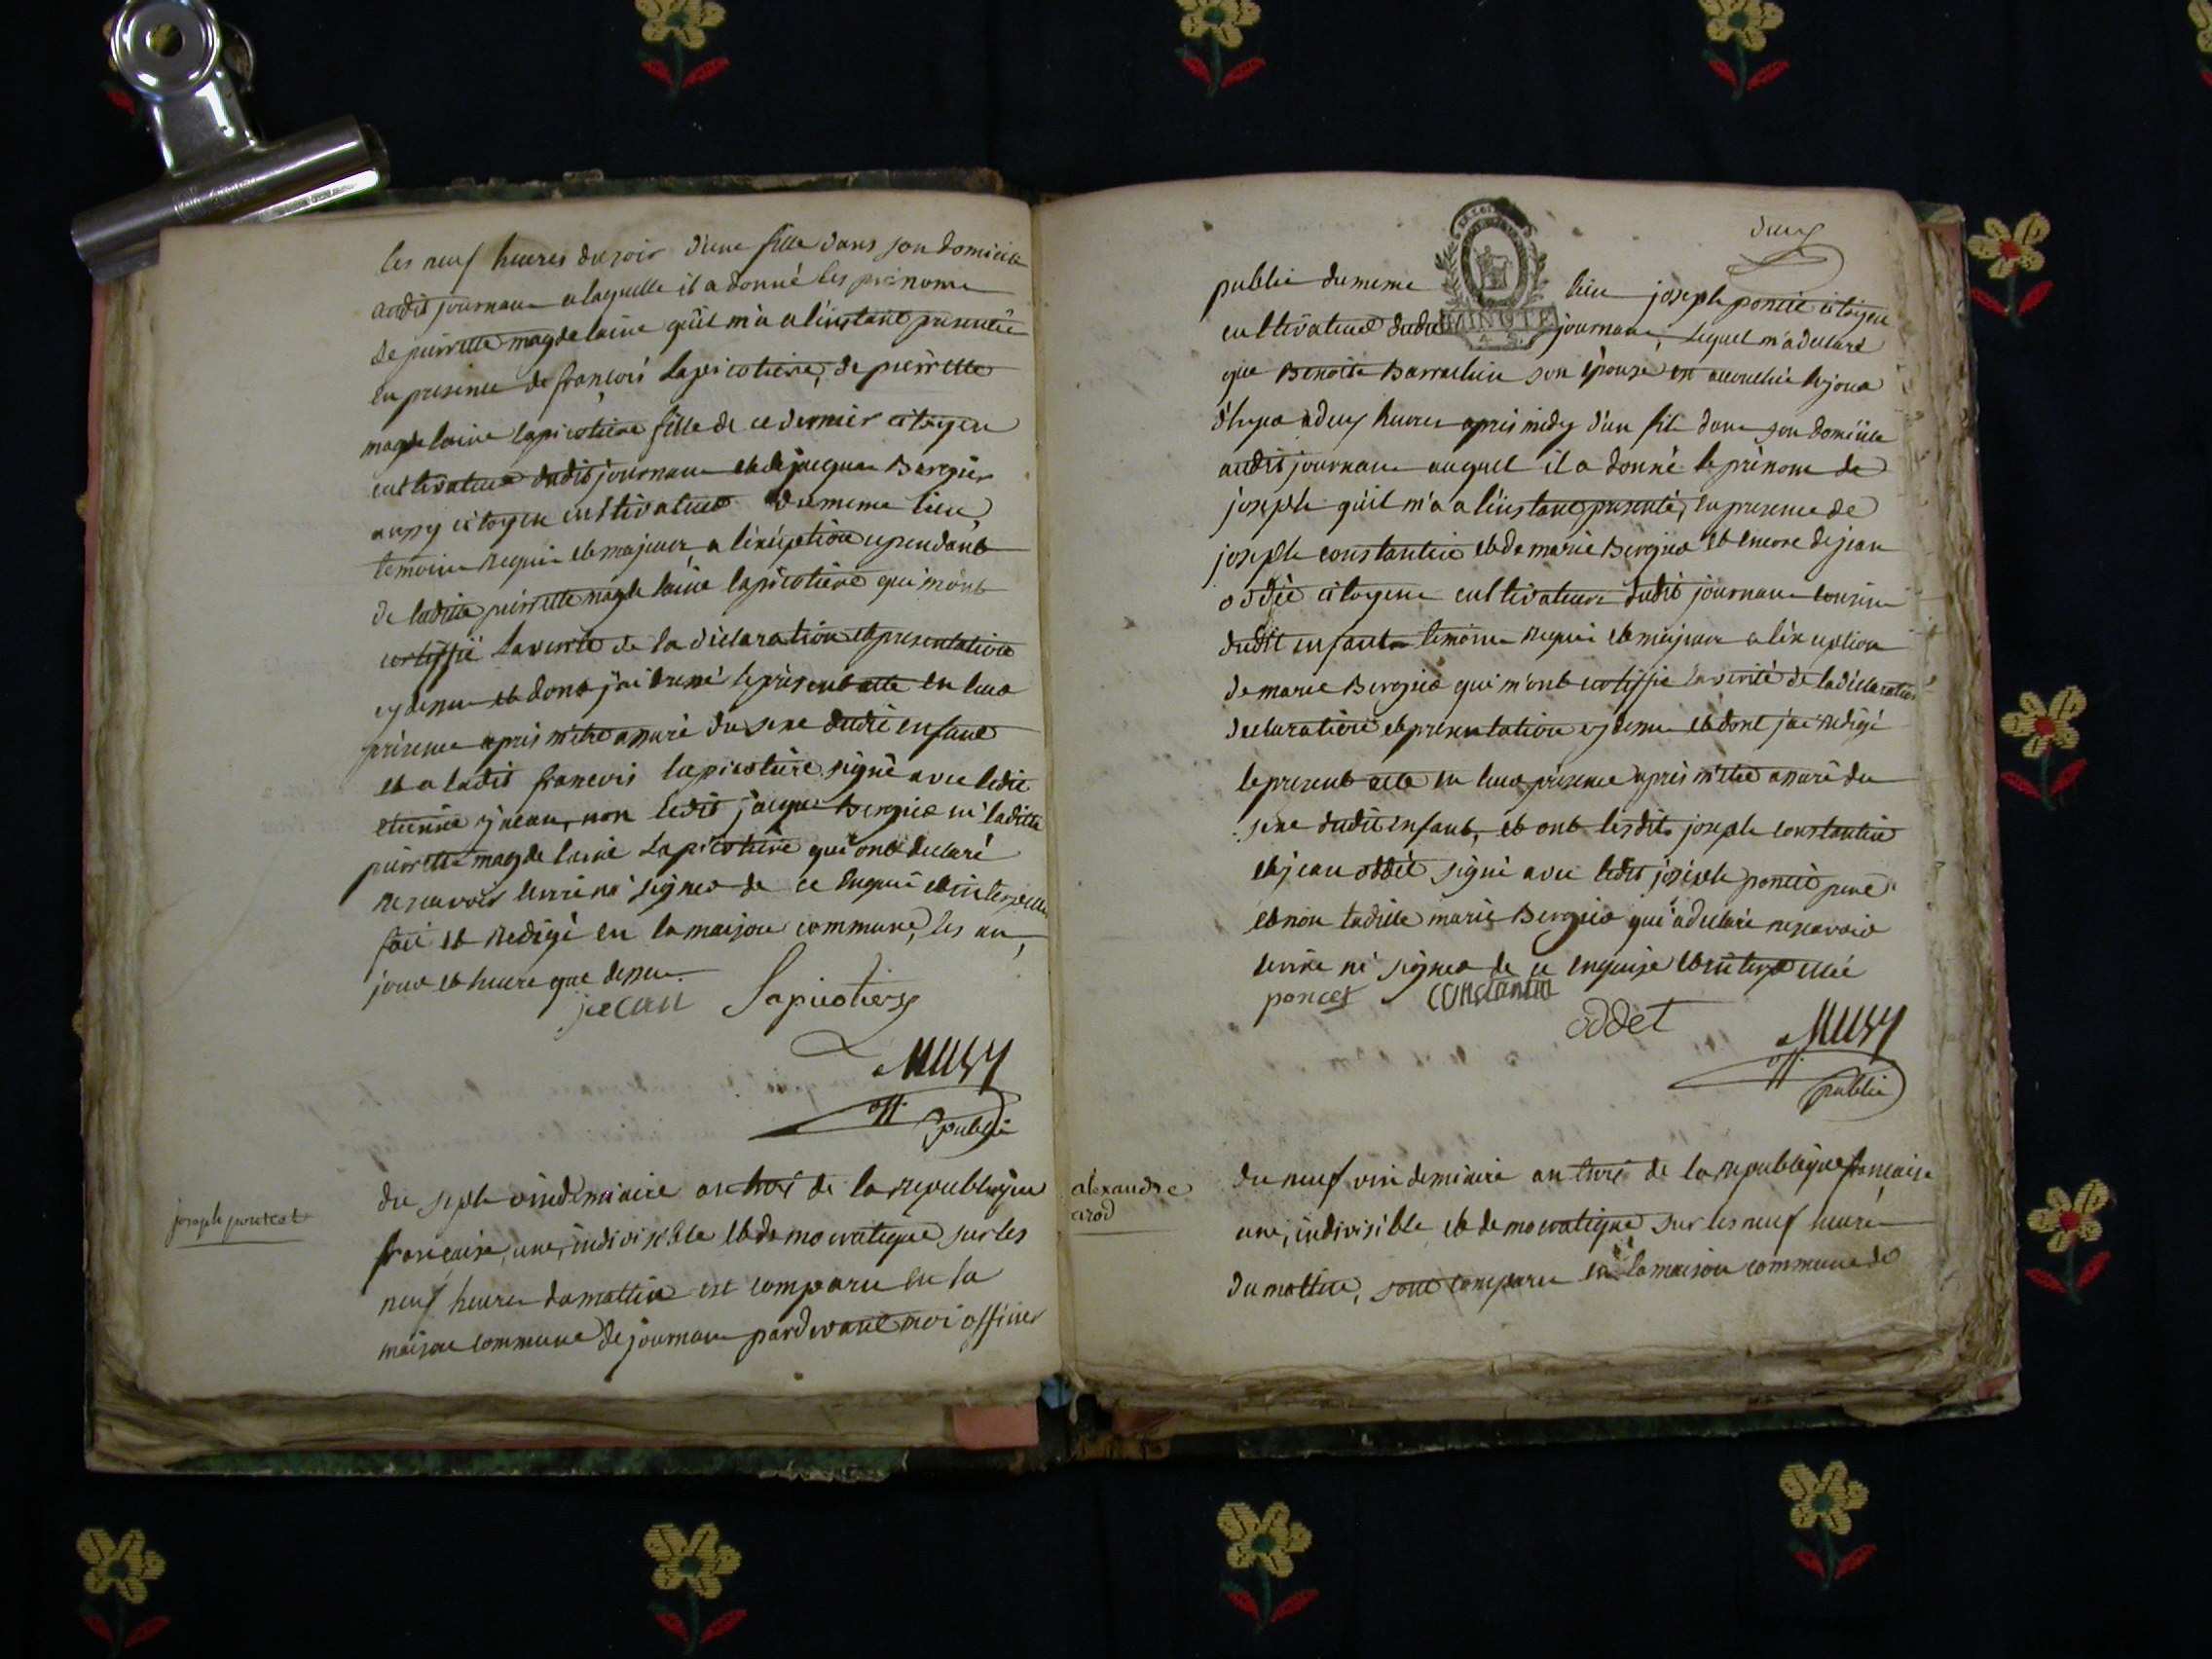 les neuf heures du soir d'une fille dans son domicile
audit journans a laquelle il a donné les prénoms
de pierrette magdelaine qu'il m'a a l'instant presentée
en presence de françois Lapicotiere, de pierrette
magdelaine lapicotiere fille de ce dernier citoyen
cultivateur dudit journans et de jacques Bergier
aussy citoyen cultivateur du meme lieu,
temoins requis et majeurs a l'exception cependant
de ladite pierrette magdelaine lapicotiere qui m'ont
certiffié la verité de la déclaration et presentation
cy dessus et dont j'ai dressé le présent acte en leur
présence apres m'etre assuré du sexe dudit enfant
et a ledit francois lapicotiere signé avec ledit
etienne jacan, non ledit jacques Bergier ni ladite
pierrette magdelaine Lapicotiere qui ont declaré
ne scavoir ecrire ni signer de ce enquis et interpellés
fait et redigé en la maison commune, les an,
jour et heure que dessus.
jacan Lapicotiere
Musy
off.
public
joseph poncet
du sept vindemiaire an trois de la republique
française, une, indivisible et democratique sur les
neuf heures du mattin est comparu en la
maison commune de journans pardevant moi officier
deux
public du meme lieu joseph poncet citoyen
MINUTE
cultivateur dudit journans, Lequel m'a declaré
que Benoite Barrachin son épouse est accouchée le jour
d'hyer a deux heures apres midy d'un fils dans son domicile
audit journans auquel il a donné le prénom de
joseph qu'il m'a a l'instant presenté, en presence de
joseph constantin et de marie Bergier et encore de jean
oddet citoyens cultivateurs dudit journans cousins
dudit enfant temoins requis et majeurs a l'exception
de marie Bergier qui m'ont certiffié la verité de la déclaration
declaration et presentation cy dessus et dont j'ai redigé
le present acte en leur présence apres m'etre assuré du
sexe dudit enfant, et ont lesdits joseph constantin
et jean oddet signé avec ledit joseph poncet pere
et non ladite marie Bergier qui a declaré ne scavoir
ecrire ni signer de ce enquise et interpellée
poncet constantin
oddet
Musy
off.
public
alexandre
arod
du neuf vindemiaire an trois de la republique française
une, indivisible et democratique sur les neuf heures
du mattin, sont comparu en la maison commune de